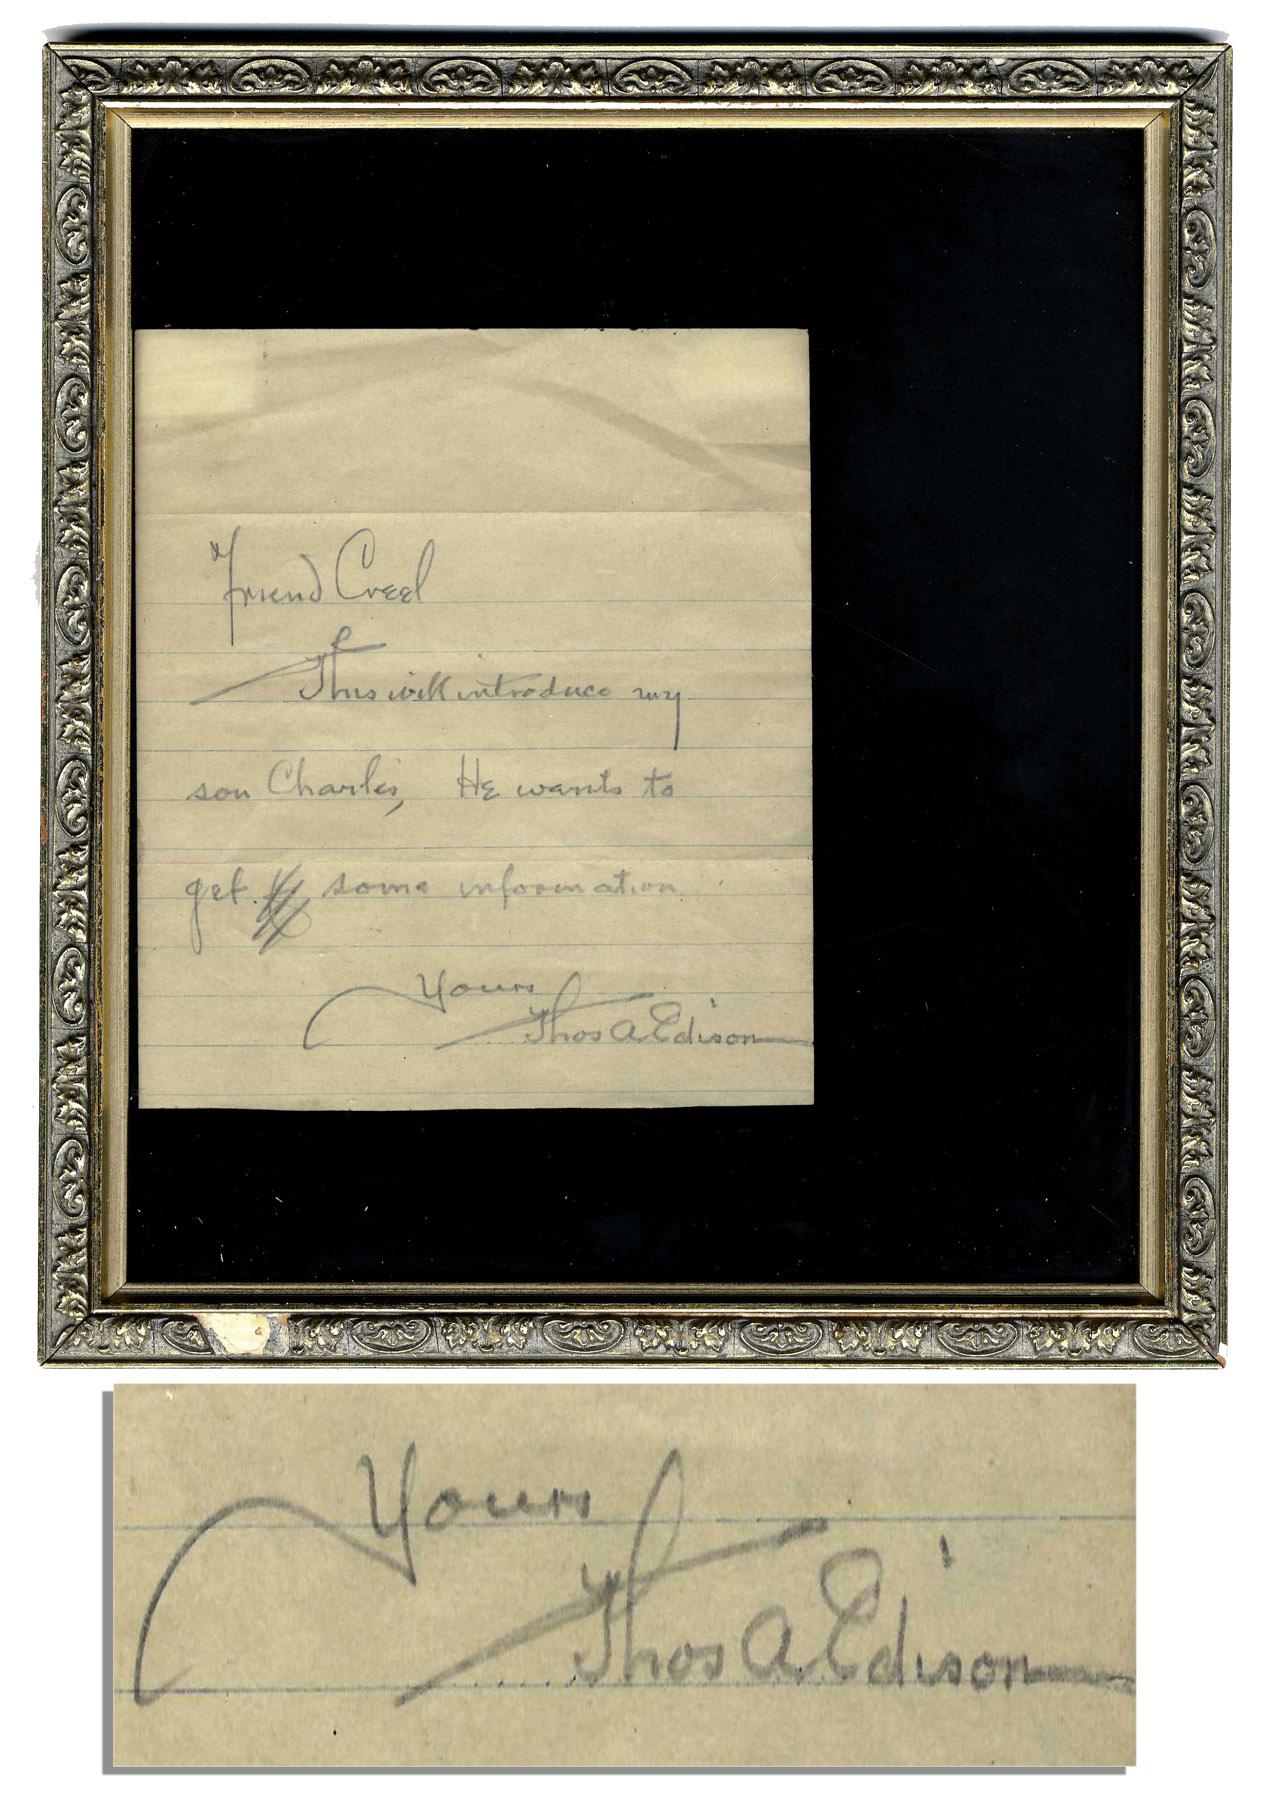 Friend Creel
This will introduce my
son Charles, He wants to
get some information
Yours
Thos A Edison
Yours
Thos A Edison